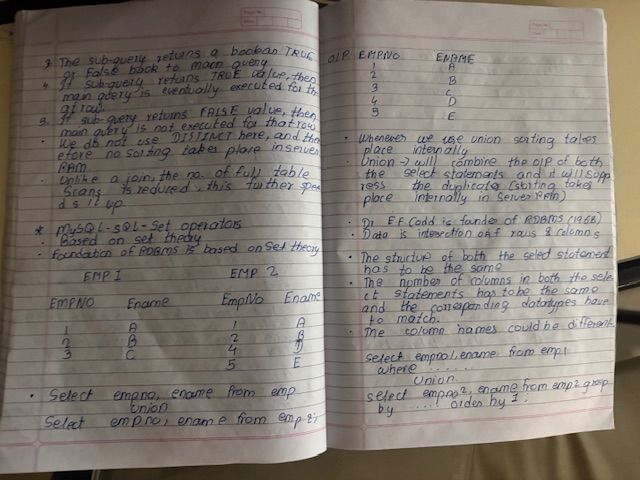 3 The sub-query returns a boolean TRUE
or False back to main query
4. If sub-query returns TRUE value, then
main query is eventually executed for th
at row
5. If sub-query returns FALSE value, then
main query is not executed for that row
We do not use DISTINCT here, and ther
efore no sorting takes place in server
RAM.
- Unlike a join, the no. of full table
scans is reduced, this further spee
d s it up
* MySQL-SQL-Set operators
- Based on set theory
- Foundation of RDBMS is based on Set theory
EMP 1 EMP 2
EMPNO Ename EmpNo Ename
1 A 1 A
2 B 2 B
3 C 4 D
5 E
• Select empno, ename from emp
Union
Select empno, ename from emp 2;
Page No.
Date
O/P EMPNO ENAME
1 A
2 B
3 C
4 D
5 E
• Whenever we use union sorting takes
place internally
Union → will combine the O/P of both
the select statements and it will supp
ress the duplicates (sorting takes
place internally in Server RAM)
• Dr E.F Codd is founder of RDBMS (1968)
• Data is intersection of rows & columns
• The structue of both the select statement
has to be the same
• The number of columns in both the sele
ct statements has to be the same
and the corresponding datatypes have
to match.
• The column names could be different
select empno1, ename from emp1
where ......
Union
select empno2, ename from emp2 group
by ..... order by 1.
Page No.
Date